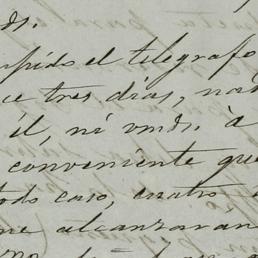 ds.
mpido el telegrafo
ce tres dias, nad
él, ni vndr. à
conveniente que
todo caso, cuatro
me alcanzaran